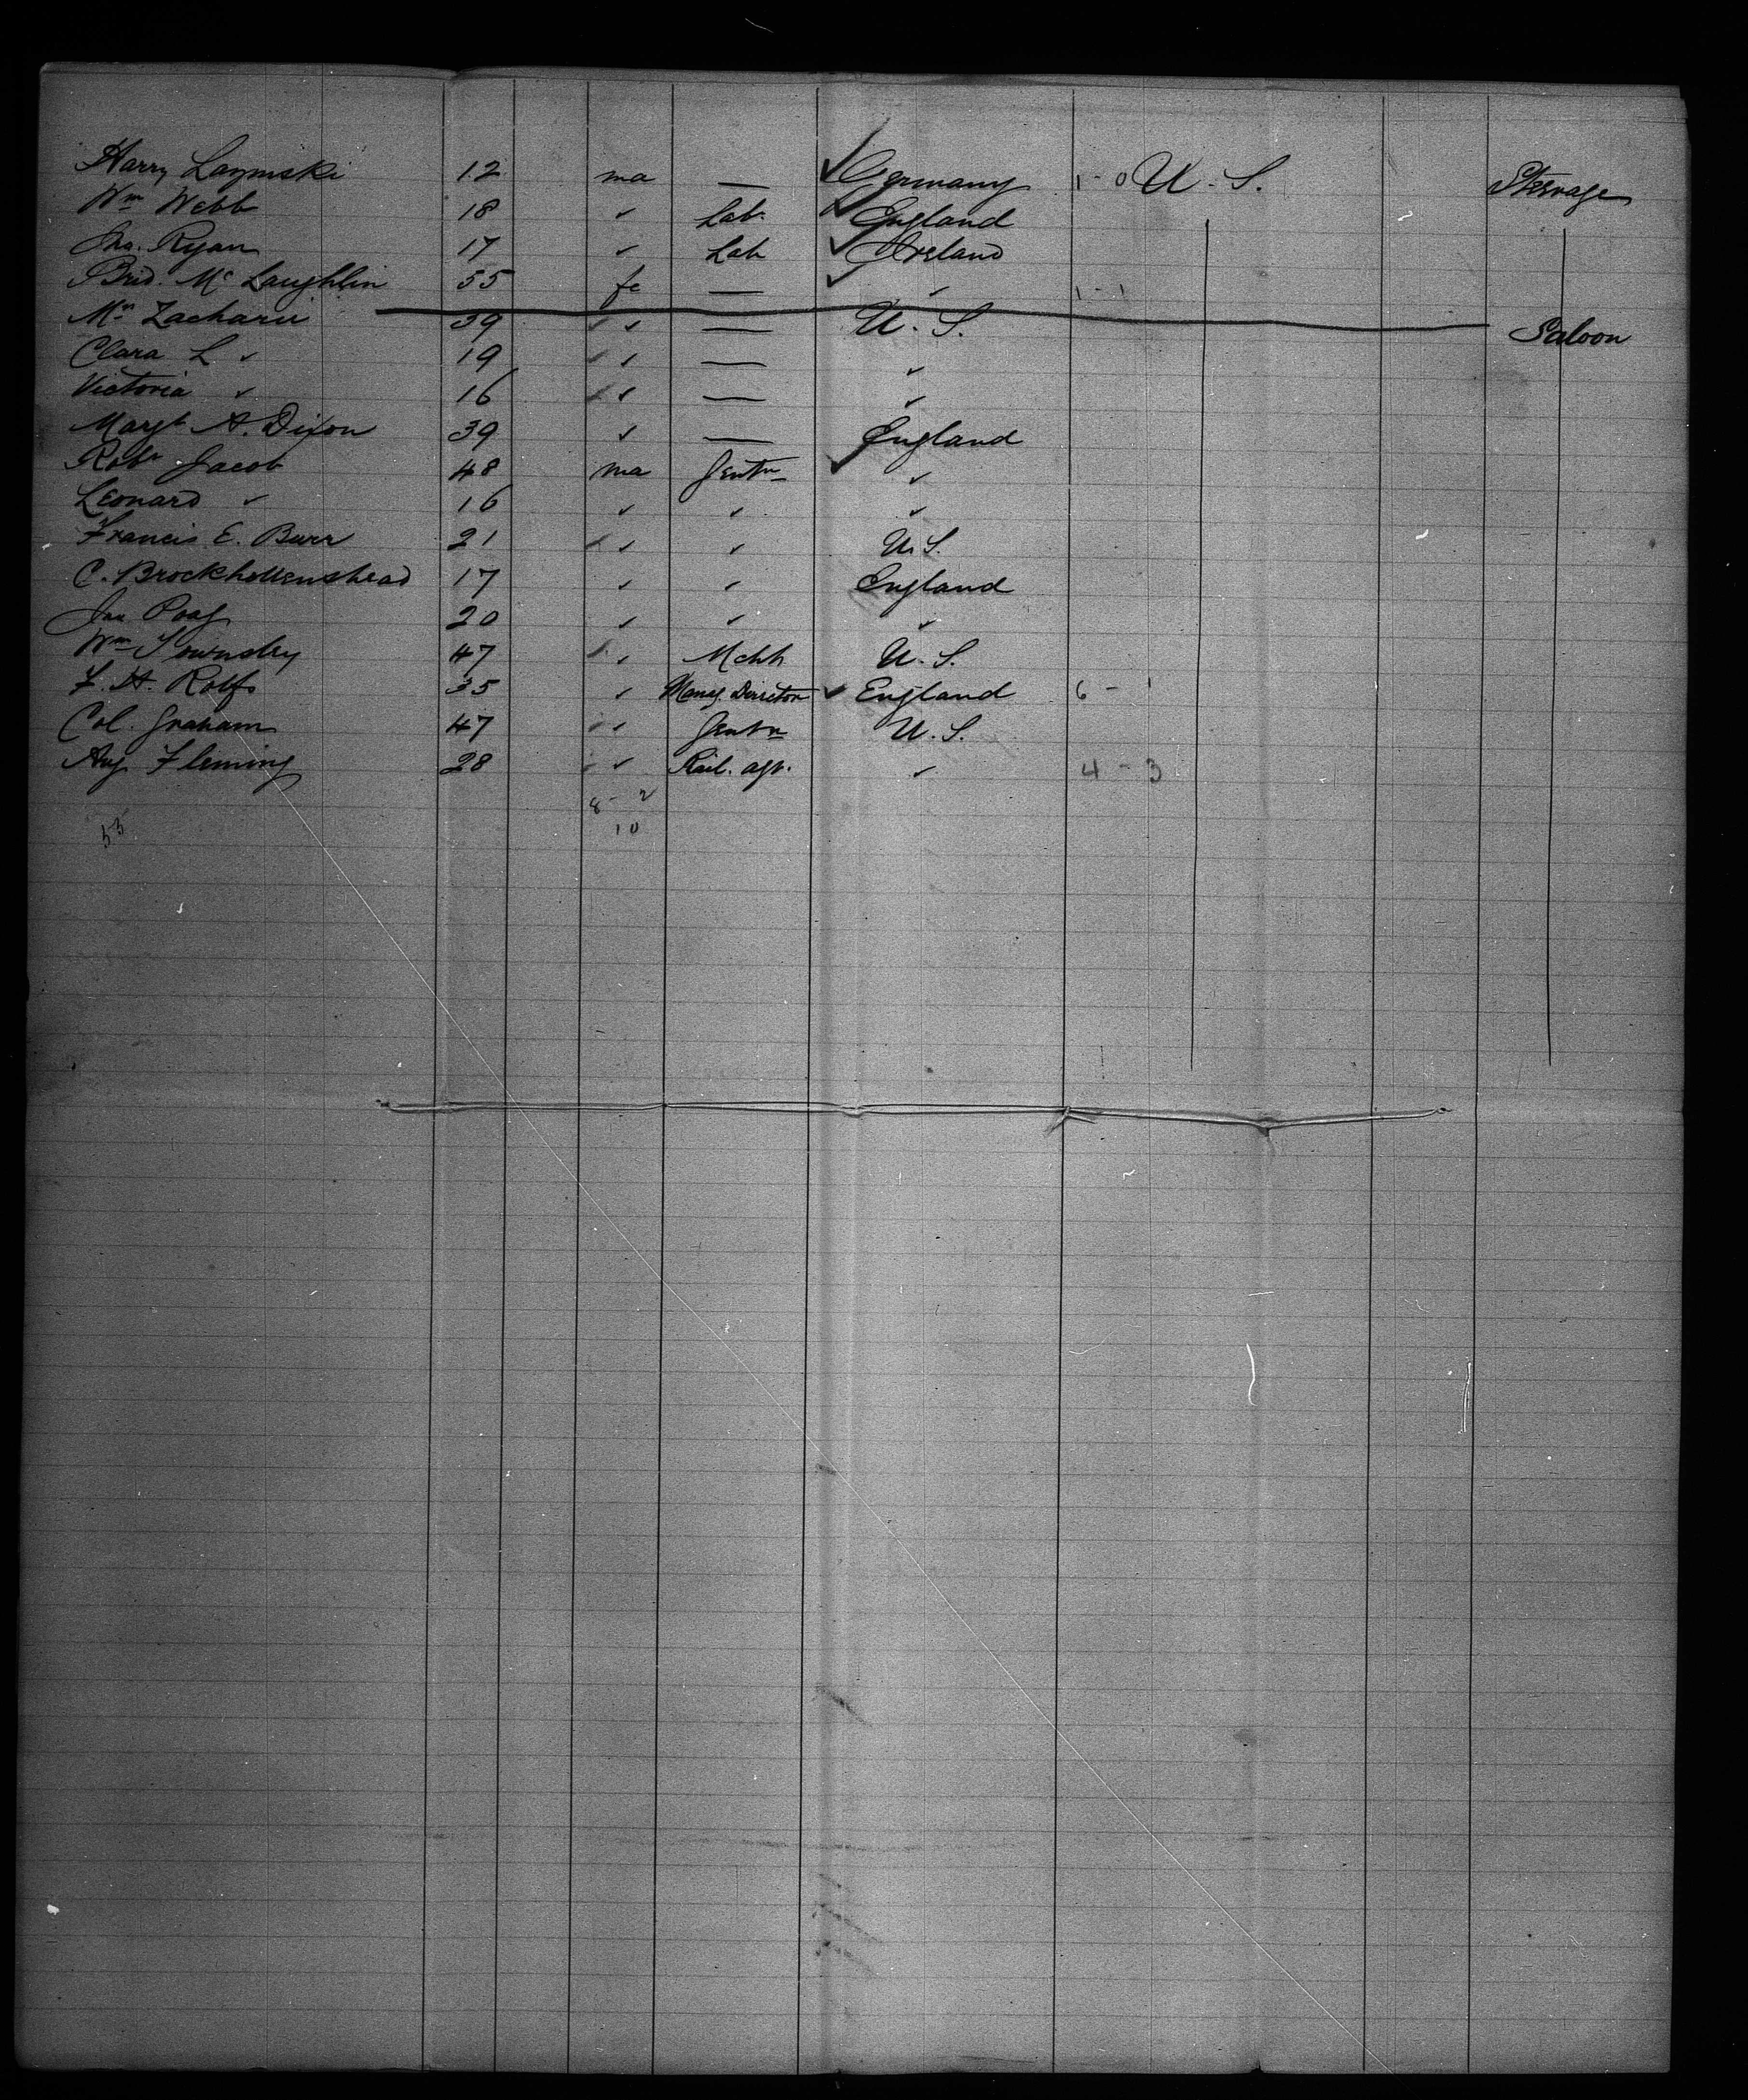 Harry Lazinski 12 ma — ✓ Germany 1 - 0 U. S. Steerage
Wm Webb 18 ✓ Lab. ✓ England
Jno. Ryan 17 ✓ Lab ✓ Ireland
Brid. Mc Laughlin 55 fe — ✓ ✓ 1 - 1
Mrs Zacharie 39 ✓ — U. S. Saloon
Clara L ✓ 19 ✓ — ✓
Victoria ✓ 16 ✓ — ✓
Margt A. Dixon 39 ✓ — England
Robt Jacob 48 ma Gentn ✓ ✓
Leonard ✓ 16 ✓ ✓ ✓
Francis E. Burr 21 ✓ ✓ U.S.
C. Brockhollenshead 17 ✓ ✓ England
Jas Poag 20 ✓ ✓ ✓
Wm Townsley 47 ✓ Mcht U. S.
F. H. Rolfs 35 ✓ Manag. Director ✓ England 6 - 1
Col. Graham 47 ✓ Gentn U. S.
Aug Fleming 28 ✓ Rail. agt. ✓ 4 - 3
8 - 2
55 10